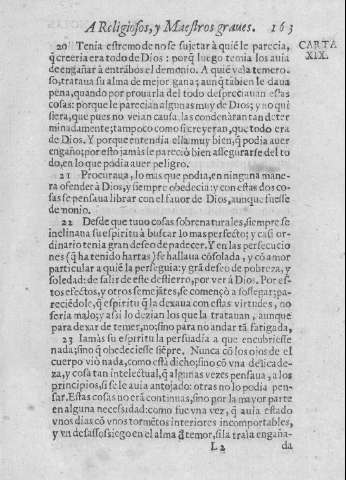 A Religiosos, y Maestros graues. 163
CARTA
XIX.
20 Tenia estremo de no se sujetar à quiẽ le parecia,
q̃ creeria era todo de Dios: porq̃ luego temia los auia
de engañar à entrãbos el demonio. A quiẽ veia temero-
so, trataua su alma de mejor gana; aunq̃ tãbien le daua
pena, quando por prouarla del todo despreciauan estas
cosas: porque le parecian algunas muy de Dios; y no qui
siera, que pues no veian causa, las condenàran tan deter
minadamente; tampoco como si creyeran, que todo era
de Dios. Y porque entendia ella muy bien, q̃ podia auer
engaño; por esto jamàs le pareciò bien assegurarse del to
do, en lo que podia auer peligro.
21 Procuraua, lo mas que podia, en ninguna mane-
ra ofender à Dios, y siempre obedecia: y con estas dos co-
sas se pensaua librar con el fauor de Dios, aunque fuesse
demonio.
22 Desde que tuuo cosas sobrenaturales, siempre se
inclinaua su espiritu à buscar lo mas perfecto; y casi or-
dinario tenia gran deseo de padecer. Y en las persecucio
nes (q̃ ha tenido hartas) se hallaua cõsolada, y cõ amor
particular a quiẽ la perseguia: y grã deseo de pobreza, y
soledad: de salir de este destierro, por ver à Dios. Por es-
tos efectos, y otros semejãtes, se començò a sossegar; pa-
reciẽdole, q̃ espiritu q̃ la dexaua con estas virtudes, no
seria malo; y assi lo dezian los que la tratauan, aunque
para dexar de temer, no; sino para no andar tã fatigada,
23 Iamàs su espiritu la persuadia a que encubriesse
nada; sino q̃ obedeciesse siẽpre. Nunca cõ los ojos de el
cuerpo viò nada, como està dicho; sino cõ vna delicade-
za, y cosa tan intelectual, q̃ algunas vezes pensaua, a los
principios, si se le auia antojado: otras no lo podia pen-
sar. Estas cosas no erã continuas, sino por la mayor parte
en alguna necessidad: como fue vna vez, q̃ auia estado
vnos dias cõ vnos tormẽtos interiores incomportables,
y vn desassossiego en el alma a temor, si la traìa engaña-
L 2 da